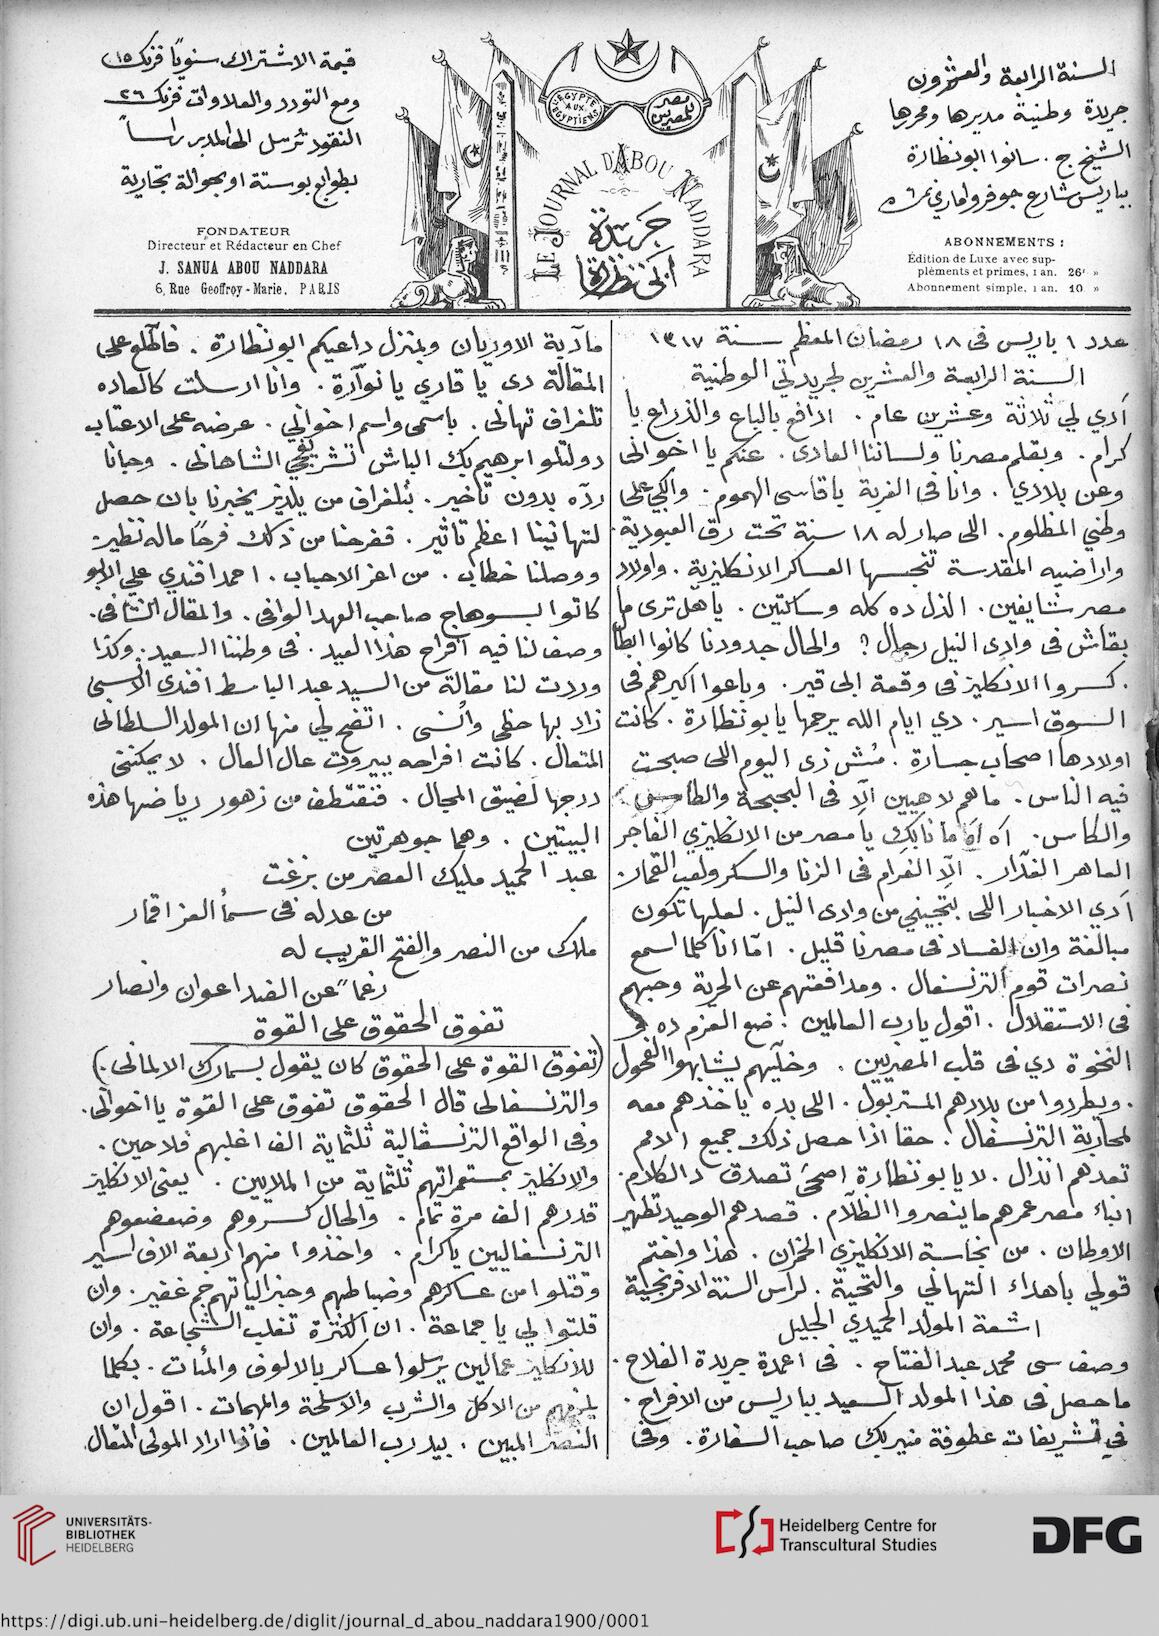 السنة الرابعة والعشرون
جريدة وطنية مديرها ومحررها
الشيخ ج. سانوا ابو نظارة
بباريس شارع جوفروا ماري نمرة ٦
ABONNEMENTS :
Édition de Luxe avec sup-
pléments et primes, 1 an. 26f »
Abonnement simple, 1 an. 10 »
ÉGYPTE
AUX
ÉGYPTIENS
مصر
للمصريين
LE JOURNAL D'ABOU NADDARA
جريدة
ابي نظارة
قيمة الاشتراك سنوياً فرنك ١٥
ومع التودد والعلاوات فرنك ٢٦
النقود ترسل الى المدير راساً
بطوابع بوستة او بحوالة تجارية
FONDATEUR
Directeur et Rédacteur en Chef
J. SANUA ABOU NADDARA
6, Rue Geoffroy - Marie, PARIS
عدد ١ باريس فى ١٨ رمضان المعظم سنة ١٣١٧
السنة الرابعة والعشرين لجريدتي الوطنية
آدي لي ثلاثة وعشرين عام . ادافع بالباع والذراع يا
كرام . وبقلم مصرنا ولساننا العادى . عنكم يا اخوانى
وعن بلادي . وانا فى الغربة ياقاسى الهموم . والكي على
وطني المظلوم . اللى صار له ١٨ سنة تحت رق العبودية .
واراضيه المقدسة تنجسها العساكر الانكليزية . واولاد
مصر شايفين . الذل ده كله وساكتين . يا هل ترى ما
بقاش فى وادى النيل رجال ? والحال جدودنا كانوا ابطا
. كسروا الانكليز فى وقعة ابى قير . وباعوا اكبرهم فى
السوق اسير . دي ايام الله يرحمها يابو نظارة . كانت
اولادها اصحاب جسارة . مش زى اليوم اللى صبحت
فيه الناس . ماهم لاهيين الّا فى البحبحة والطاس
والكاس . اه اه ما نابك يا مصر من الانكليزي الفاجر
العاهر الغدّار . الّا الغرام فى الزنا والسكر ولعب القمار .
آدي الاخبار اللى بتجيني من وادى النيل . لعلها تكون
مبالغة وان الفساد فى مصرنا قليل . امّا انا كلما اسمع
نصرات قوم الترنسفال . ومدافعتهم عن الحرية وحبهم
فى الاستقلال . اقول يارب العالمين . ضع العزم ده و
النخوة دي فى قلب المصريين . وخلّيهم يشابهوا الفحول
. ويطردوا من بلادهم المستر بول . اللى بده ياخذهم معه
لمحاربة الترنسفال . حقا اذا حصل ذلك جميع الامم
تعدهم انذال . لا يابو نظارة اصحى تصدق دا الكلام .
ابناء مصر عمرهم ما ينصروا الظلّام . قصدهم الوحيد تطهير
الاوطان . من نجاسة الانكليزي الخمران . هذا واختم
قولي باهداء التهاني والتحية . لراس السنة الافرنجية
اشعة المولد الحميدي الجليل
وصف سى محمد عبد الفتاح . فى اعمدة جريدة الفلاح .
ما حصل فى هذا المولد السعيد بباريس من الافراح .
في تشريفات عطوفة منير بك صاحب السفارة . وفى
مآدبة الاوريان وبمنزل داعيكم ابو نظارة . فاطّلع على
المقالة دى يا قاري يا نوّارة . وانا ارسلت كالعاده
تلغراف تهانى . باسمى واسم اخوانى . عرضه على الاعتاب
دولتلو ابرهيم بك الباش تشريفجي الشاهانى . وجانا
ردّه بدون تأخير . بتلغراف من يلديز يخبرنا بان حصل
لتهانينا اعظم تاثير . ففرحنا من ذلك فرحًا ماله نظير .
ووصلنا خطاب . من اعز الاحباب . احمد افندي علي الابو
كاتو السوهاج صاحب العهد الوافى . والمقال الشافى .
وصف لنا فيه افراح هذا العيد . فى وطننا السعيد . وكذا
وردت لنا مقالة من السيد عبد الباسط افندى الانسى
زاد بها حظى وانسى . اتضح لي منها ان المولد السلطانى
المتعال . كانت افراحه ببيروت عال العال . لا يمكننى
درجها لضيق المجال . فنقتطف من زهور رياضها هذه
البيتين . وهما جوهرتين
عبد الحميد مليك العصر من بزغت
من عدله فى سمأ العز اقمار
ملك من النصر والفتح القريب له
رغما عن الضد اعوان وانصار
تفوق الحقوق على القوة
(تفوق القوة على الحقوق كان يقول بسمارك الالمانى .)
والترنسفالى قال الحقوق تفوق على القوة يا اخوانى .
وفى الواقع الترنسفالية ثلثماية الف اغلبهم فلاحين .
والانكليز بمستعمراتهم ثلثماية من الملايين . يعنى الانكليز
قدرهم الف مرة تمام . والحال كسروهم وضعضعوهم
الترنسفاليين يا كرام . واخذوا منهم اربعة الاف اسير
وقتلوا من عساكرهم وضباطهم وجنرالياتهم جم غفير . وان
قلتوا لي يا جماعة . ان الكثرة تغلب الشجاعة . وان
للانكليز عمالين يرسلوا عساكر بالالوف والمئات . بكلما
يلزمهم من الاكل والشرب والاسلحة والمهمات . اقول ان
النصر المبين . بيد رب العالمين . فاذا اراد المولى المتعال
UNIVERSITÄTS-
BIBLIOTHEK
HEIDELBERG
Heidelberg Centre for
Transcultural Studies
DFG
https://digi.ub.uni-heidelberg.de/diglit/journal_d_abou_naddara1900/0001